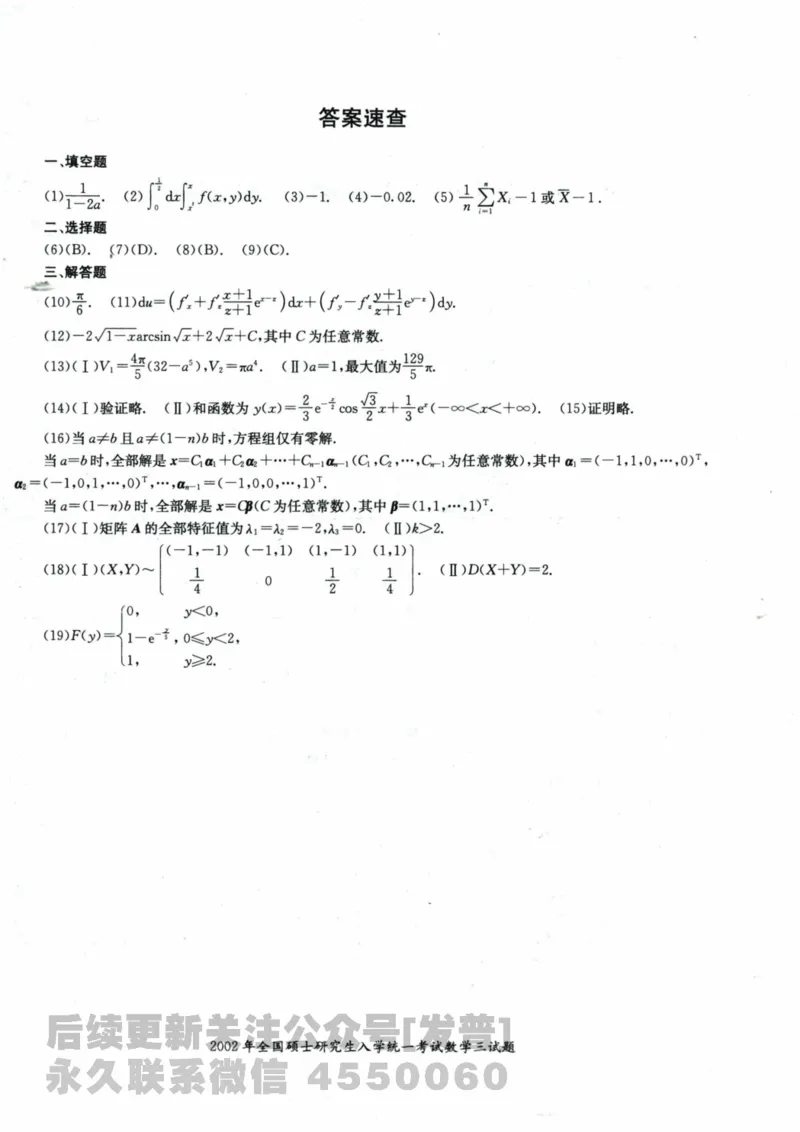 答案速查
一、填空题
(1) 1/(1−2a). (2) ∫₀^{1/2} dx ∫_{x²}^{x} f(x,y)dy. (3)−1. (4)−0.02. (5) 1/n ∑_{i=1}^{n} Xᵢ−1或X̄−1.
二、选择题
(6)(B). (7)(D). (8)(B). (9)(C).
三、解答题
(10) π/6. (11)du=(f′ₓ+f′_z (x+1)/(z+1) e^{x−z})dx+(f′_y−f′_z (y+1)/(z+1) e^{y−z})dy.
(12)−2√(1−x)arcsin√x+2√x+C,其中C为任意常数.
(13)(Ⅰ)V₁=4π/5(32−a⁵),V₂=πa⁴. (Ⅱ)a=1,最大值为129/5 π.
(14)(Ⅰ)验证略. (Ⅱ)和函数为y(x)=2/3 e^{−x/2} cos √3/2 x+1/3 eˣ(−∞<x<+∞). (15)证明略.
(16)当a≠b且a≠(1−n)b时,方程组仅有零解.
当a=b时,全部解是x=C₁α₁+C₂α₂+⋯+Cₙ₋₁αₙ₋₁(C₁,C₂,⋯,Cₙ₋₁为任意常数),其中α₁=(−1,1,0,⋯,0)ᵀ,
α₂=(−1,0,1,⋯,0)ᵀ,⋯,αₙ₋₁=(−1,0,0,⋯,1)ᵀ.
当a=(1−n)b时,全部解是x=Cβ(C为任意常数),其中β=(1,1,⋯,1)ᵀ.
(17)(Ⅰ)矩阵A的全部特征值为λ₁=λ₂=−2,λ₃=0. (Ⅱ)k>2.
(−1,−1) (−1,1) (1,−1) (1,1)
(18)(Ⅰ)(X,Y)~ 1/4 0 1/2 1/4 . (Ⅱ)D(X+Y)=2.
0, y<0,
(19)F(y)= 1−e^{−y/5}, 0≤y<2,
1, y≥2.
后续更新关注公众号[发普]
2002年全国硕士研究生入学统一考试数学三试题
永久联系微信 4550060